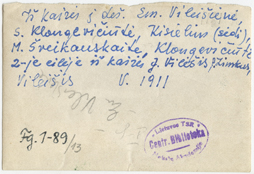 Iš kairės į deš. Em. Vileišienė,
S. Klongevičiūtė, Kisielius (sėdi),
M. Šreikauskaitė, Klongevičiūtė
2-je eilėje iš kairės J. Vileišis, Žimkus,
Vileišis V. 1911
Fg. 1-89/13
Lietuvos TSR
Centr. Biblioteka